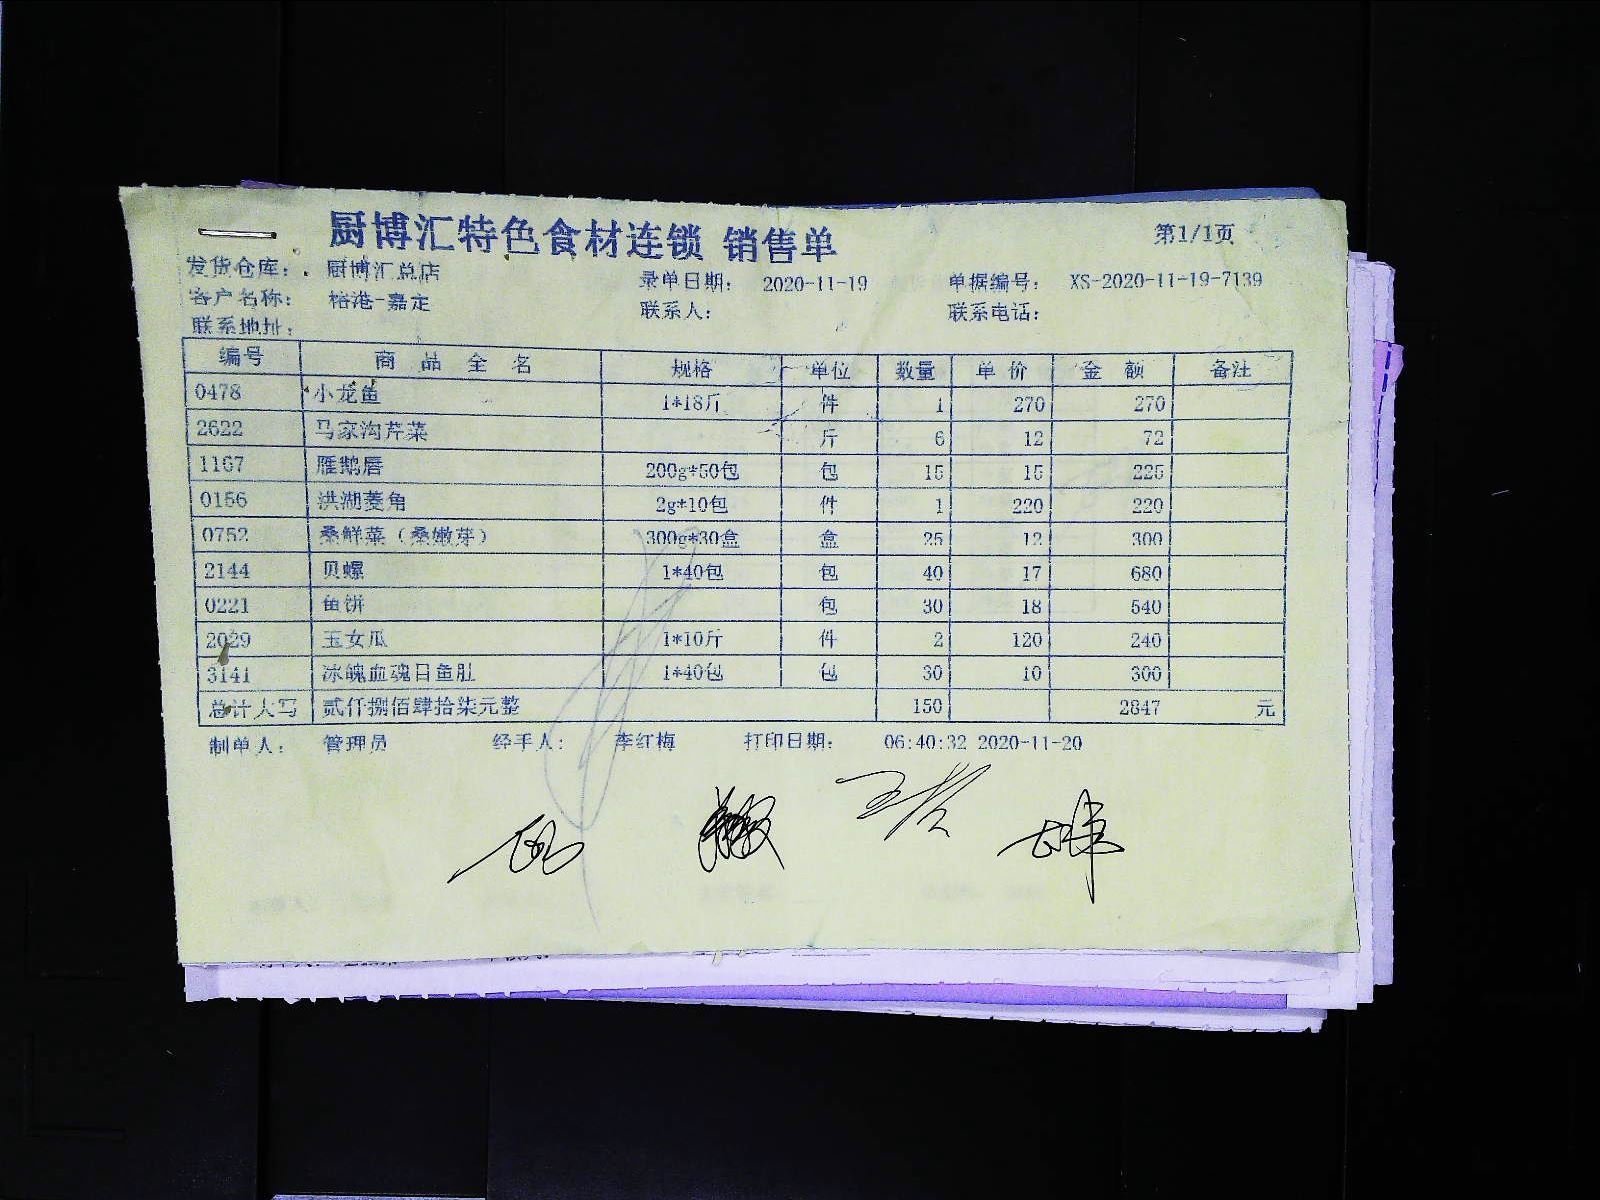 厨博汇特色食材连锁 销售单 第1/1页
发货仓库： 厨博汇总店 录单日期： 2020-11-19 单据编号： XS-2020-11-19-7139
客户名称： 榕港-嘉定 联系人： 联系电话：
联系地址：
编号 商品全名 规格 单位 数量 单价 金额 备注
0478 小龙鱼 1*18斤 件 1 270 270
2622 马家沟芹菜 斤 6 12 72
1167 雁鹅唇 200g*50包 包 15 15 225
0156 洪湖菱角 2g*10包 件 1 220 220
0752 桑鲜菜（桑嫩芽） 300g*30盒 盒 25 12 300
2144 贝螺 1*40包 包 40 17 680
0221 鱼饼 包 30 18 540
2029 玉女瓜 1*10斤 件 2 120 240
3141 冰魄血魂目鱼肚 1*40包 包 30 10 300
总计大写 贰仟捌佰肆拾柒元整 150 2847 元
制单人： 管理员 经手人： 李红梅 打印日期： 06:40:32 2020-11-20